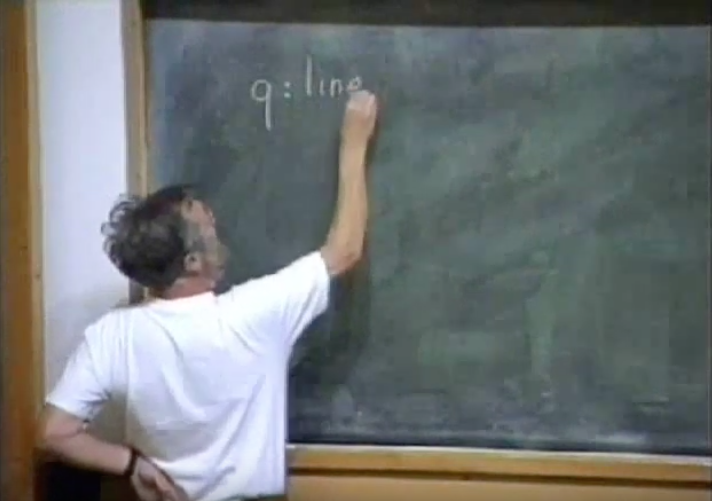 q: line